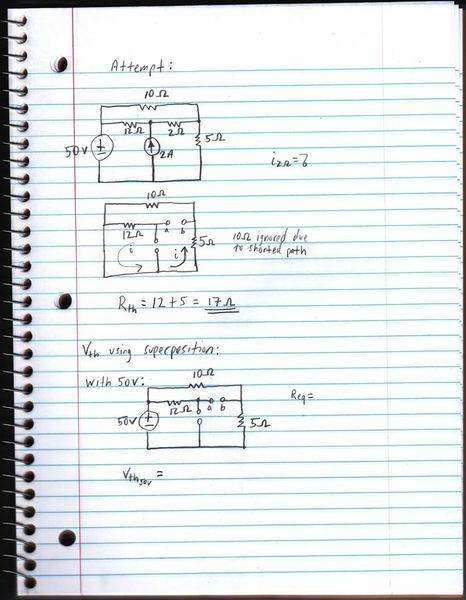 Attempt:
10Ω
12Ω
2Ω
5Ω
50V
2A
i2Ω=?
10Ω
12Ω
a
b
5Ω
i
i
10Ω ignored due
to shorted path
Rth = 12+5 = 17Ω
Vth using superposition:
with 50V:
10Ω
12Ω
a
b
50V
5Ω
Req=
Vth50V =